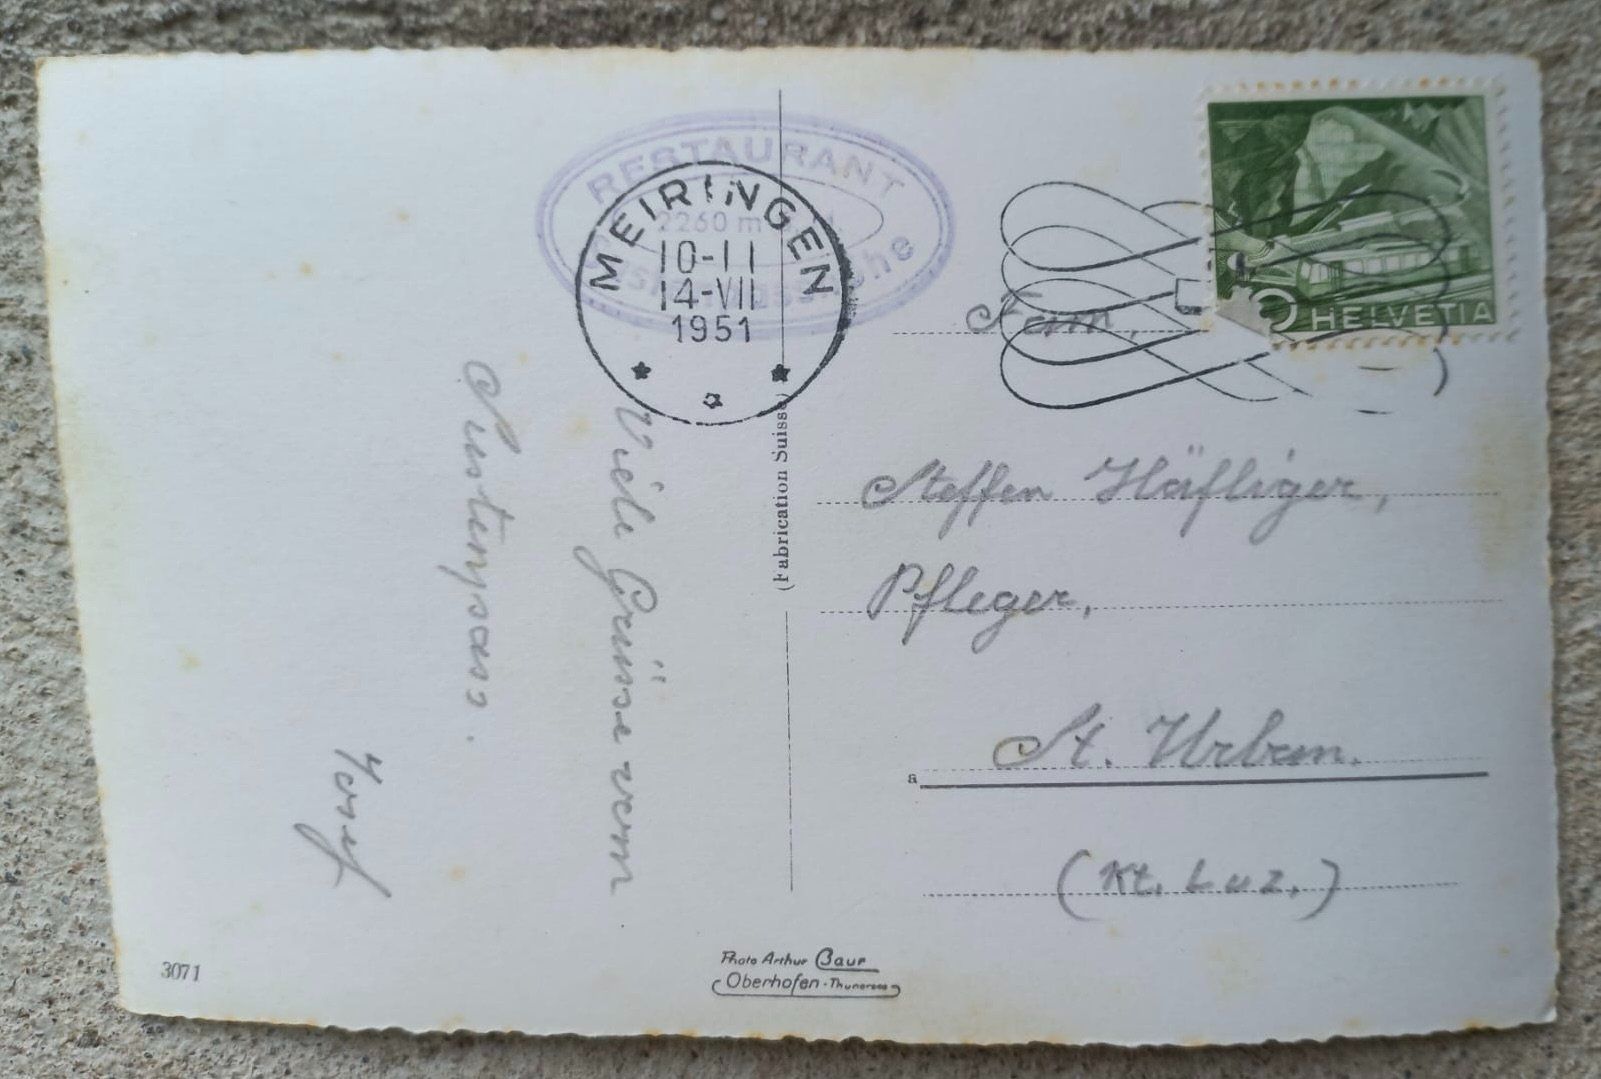 RESTAURANT
2260 m
MEIRINGEN
10-11
14-VII
1951
HELVETIA
Viele Grüsse vom
Sustenpass.
Josef
(Fabrication Suisse)
Fam.
Steffen Häfliger,
Pfleger,
a St. Urban.
(Kt. Luz.)
3071
Photo Arthur Baur
Oberhofen-Thunersee